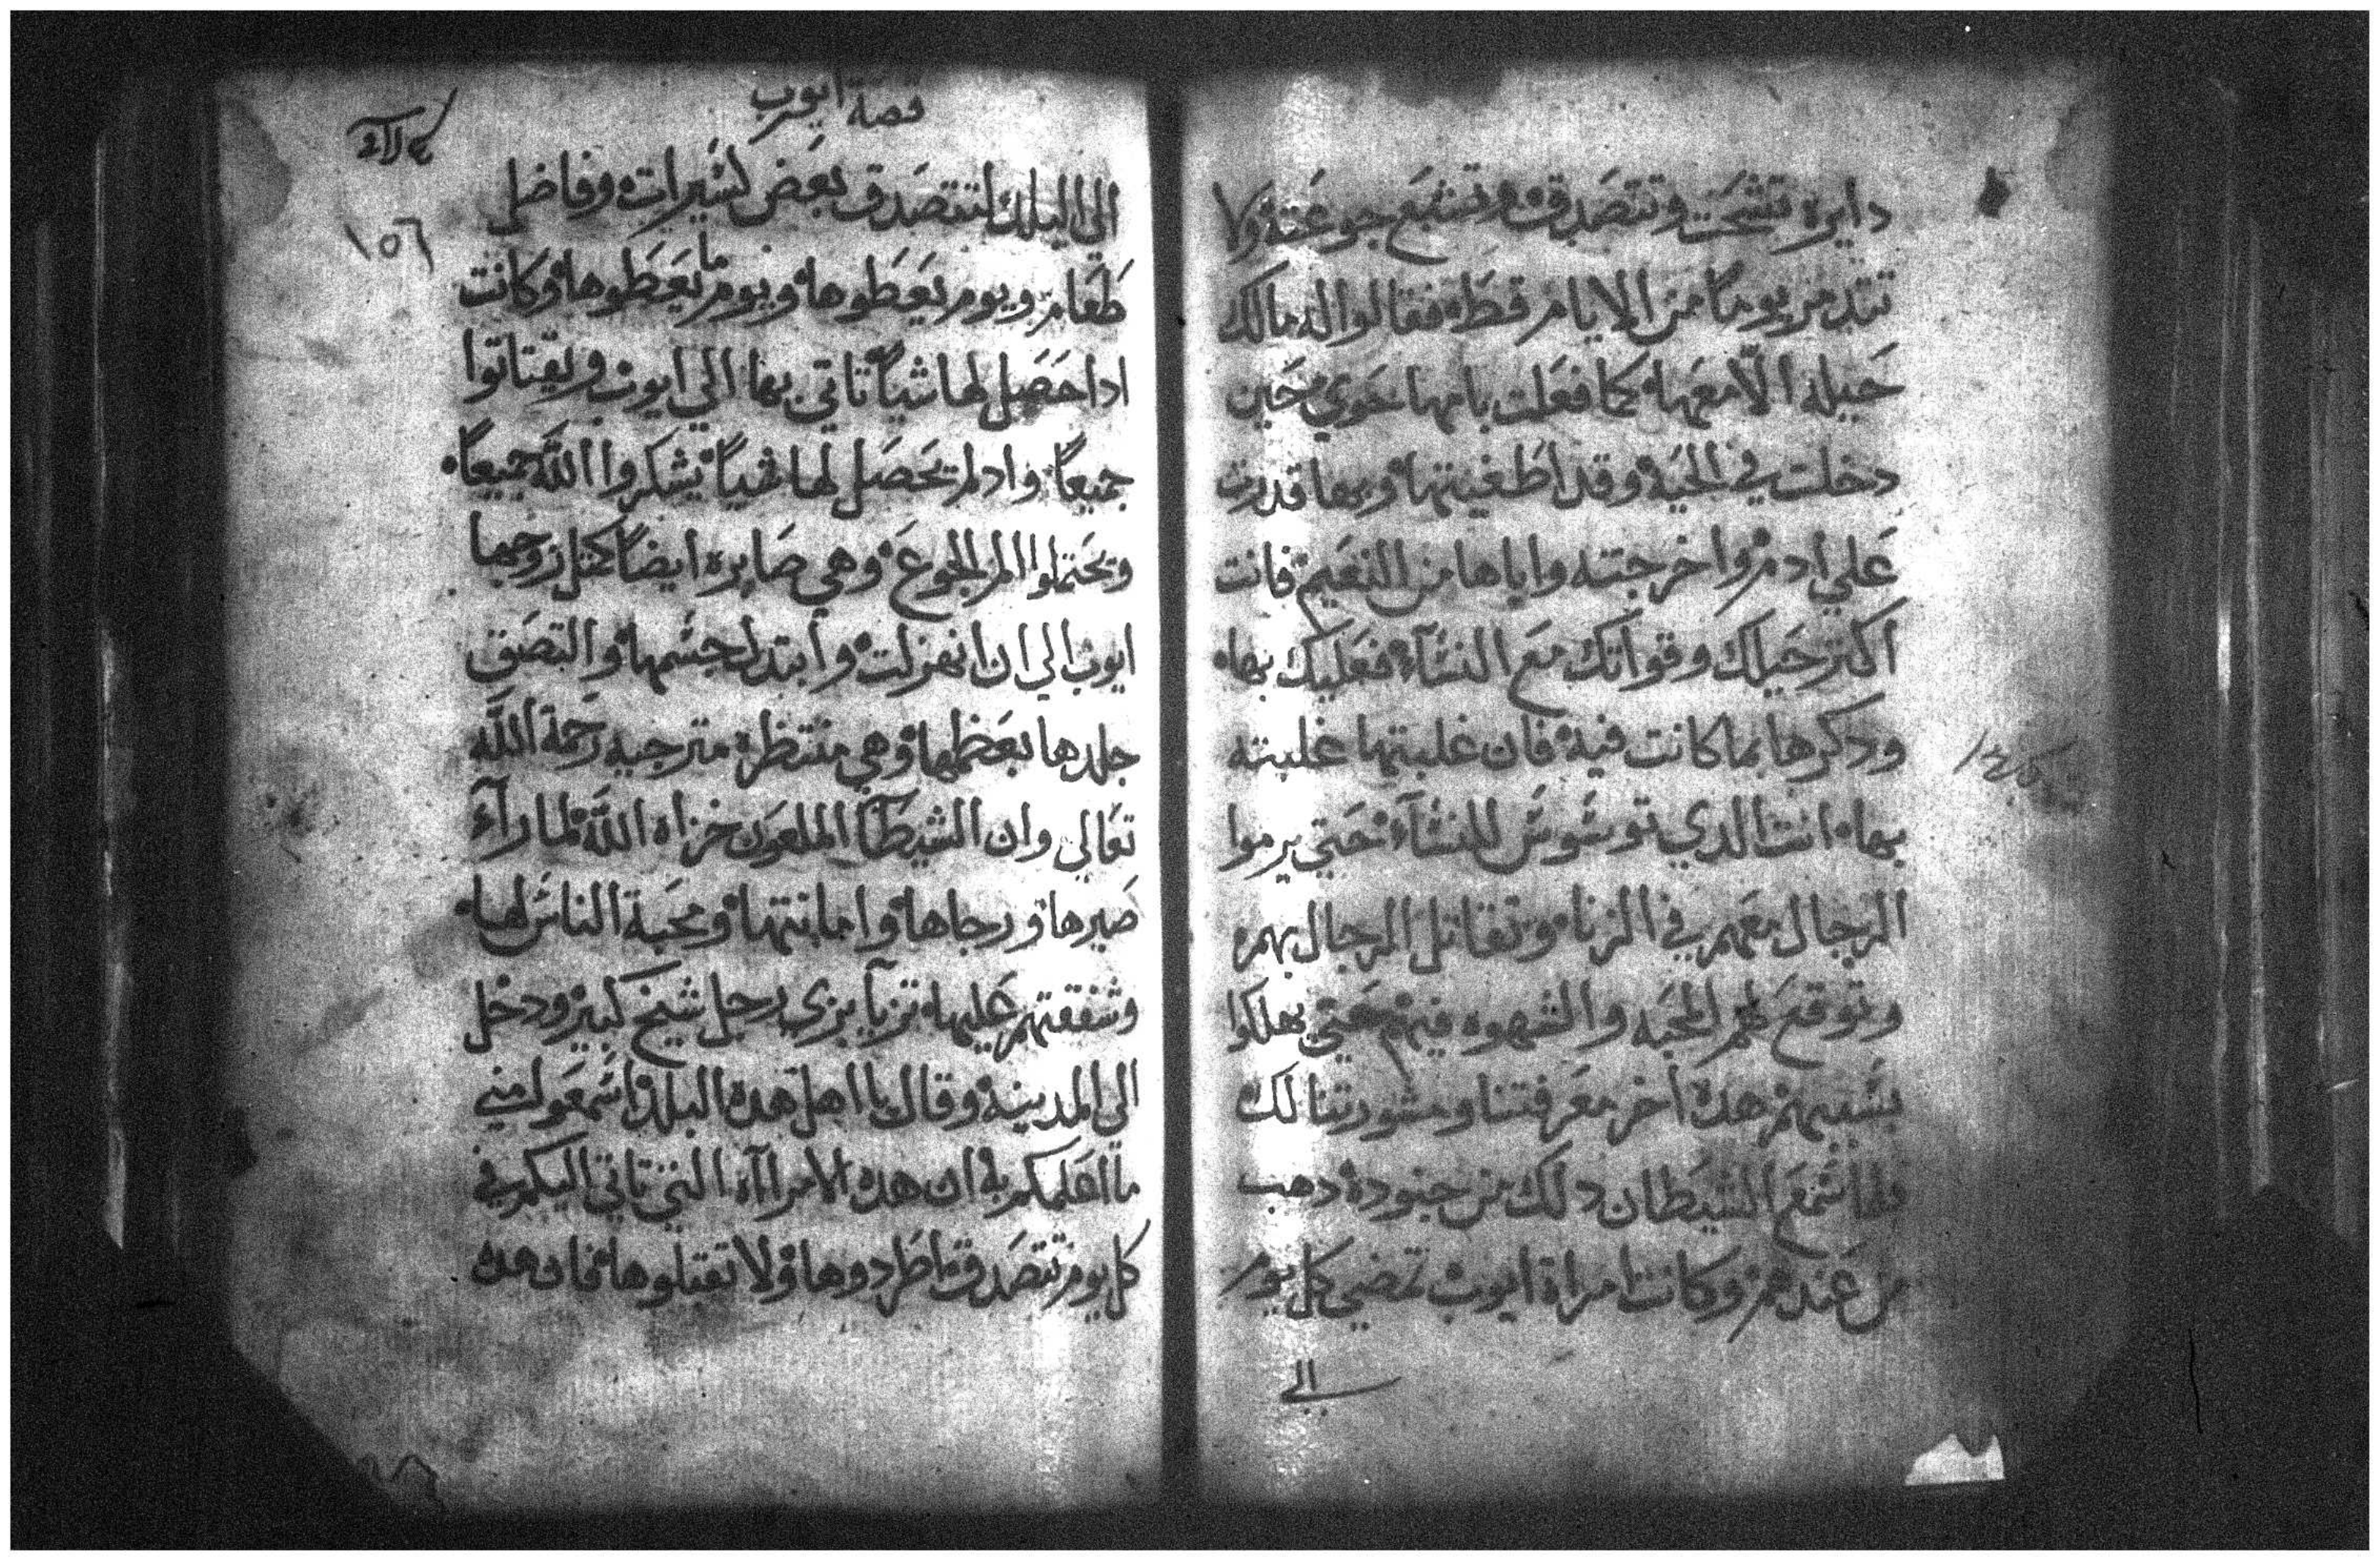 دايره تشحت وتتصدق وتشبع جوعته ولا
تتدمر يوماً من الايام قط فقالوا له مالك
حيله الا معها كما فعلت بامها حوي حين
دخلت في الحيه وقد اطغيتها وبها قدرت
علي ادم واخرجته واياها من النعيم فانت
اكتر حيلك وقواتك مع النسآء فعليك بها
ودكرها بما كانت فيه فان غلبتها غلبته
بها انت الدي توسوس للنسآء حتي يرموا
الرجال معهم في الزنا وتقاتل الرجال بهم
وتوقع لهم المحبه والشهوه فيهم حتي يهلكوا
بسببهم هده اخر معرفتنا ومشورتنا لك
فلما سمع الشيطان دلك من جنوده دهب
من عندهم وكانت امراة ايوب تمضي كل يوم
الي
قصة ايوب
١٥٦
الي البلد لتتصدق بعض كسيرات وفاضل
طعام ويوم يعطوها ويوم ما يعطوها وكانت
ادا حصل لها شياً تاتي بها الي ايوب ويقتاتوا
جميعاً وادا لم تحصل لها شياً يشكروا الله جميعاً
ويحتملوا الم الجوع وهي صابره ايضاً كمثل زوجها
ايوب الي ان انهزلت وابتدل جسمها والتصق
جلدها بعظمها وهي منتظره مترجيه رحمة الله
تعالي وان الشيطان الملعون خزاه الله لما رآء
صبرها ورجاها وامانتها ومحبة الناس لها
وشفقتهم عليها تزيآ بزي رجل شيخ كبير ودخل
الي المدينه وقال يا اهل هده البلد اسمعوا مني
ما اعلمكم به ان هده الامراآه التي تاتي اليكم في
كل يوم تتصدق اطردوها ولا تقبلوها فان هده